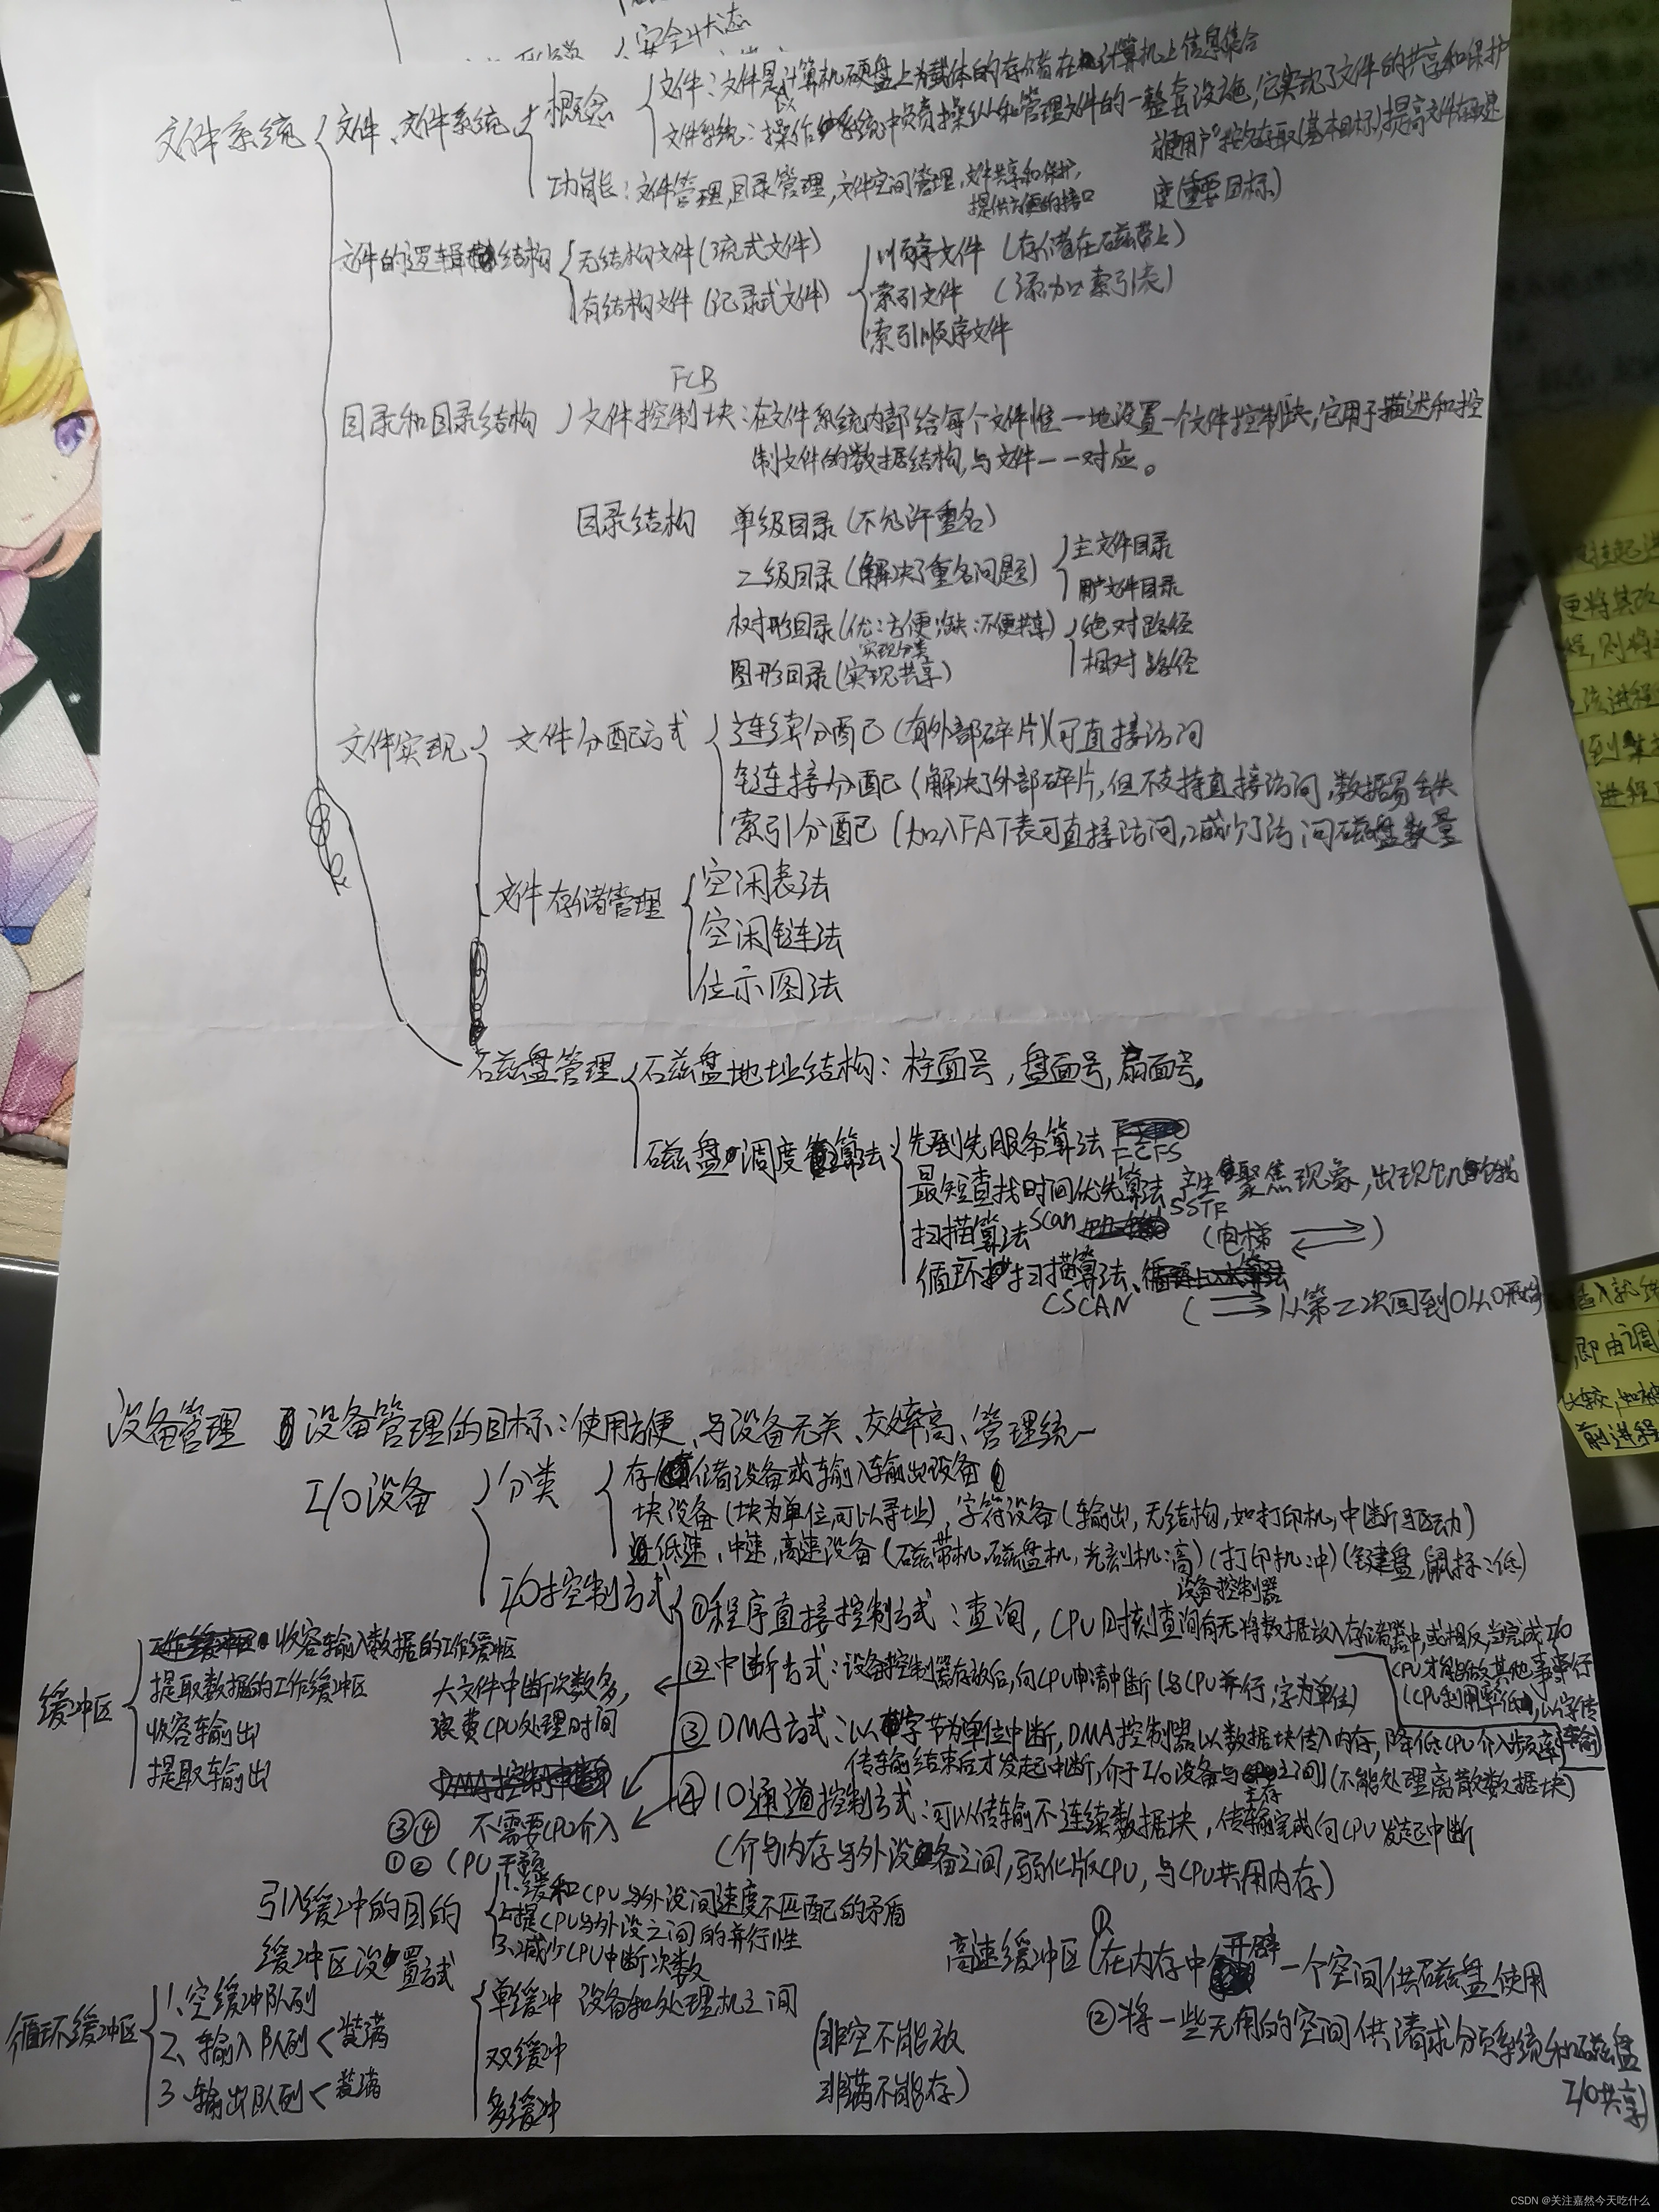 安全状态
文件系统
文件、文件系统
概念
文件：文件是以计算机硬盘上为载体的存储在计算机上信息集合
文件系统：操作系统中负责操纵和管理文件的一整套设施，它实现了文件的共享和保护
方便用户"按名存取(基本目标)提高文件存取速
度(重要目标)
功能：文件管理,目录管理,文件空间管理,文件共享和保护,
提供方便的接口
文件的逻辑结构
无结构文件(流式文件)
有结构文件(记录式文件)
顺序文件 (存储在磁带上)
索引文件 (添加索引表)
索引顺序文件
FCB
目录和目录结构
文件控制块：在文件系统内部给每个文件惟一地设置一个文件控制块,它用于描述和控
制文件的数据结构,与文件一一对应。
目录结构
单级目录(不允许重名)
二级目录(解决了重名问题)
主文件目录
用户文件目录
树形目录(优:方便;缺:不便共享)
实现分类
绝对路径
相对路径
图形目录(实现共享)
文件实现
文件分配方式
连续分配(有外部碎片)(可直接访问
链接分配(解决了外部碎片,但不支持直接访问,数据易丢失
索引分配(加入FAT表可直接访问,减少了访问磁盘数量
文件存储管理
空闲表法
空闲链法
位示图法
磁盘管理
磁盘地址结构：柱面号,盘面号,扇面号。
磁盘调度算法
先到先服务算法 FCFS
最短查找时间优先算法 SSTF 产生聚焦现象,出现饥饿
扫描算法 Scan (电梯 )
循环扫描算法、
CSCAN
( 从第二次回到0从0开始
设备管理
设备管理的目标：使用方便、与设备无关、效率高、管理统一
I/O设备
分类
存储设备或输入输出设备
块设备(块为单位,可以寻址),字符设备(输出,无结构,如打印机,中断驱动)
低速、中速,高速设备(磁带机,磁盘机,光刻机:高)(打印机:冲)(键盘,鼠标:低)
I/O控制方式
设备控制器
①程序直接控制方式：查询,CPU时刻查询有无将数据放入存储器中,或相反,当完成I/O
CPU才能做其他事
(CPU利用率低),以字传
输
②中断方式：设备控制器存放后,向CPU申请中断(与CPU并行,字为单位)
大文件中断次数多,
浪费CPU处理时间
③DMA方式：以字节为单位中断,DMA控制器以数据块传入内存,降低CPU介入频率
传输结束后才发起中断,介于I/O设备与主存之间)(不能处理离散数据块)
④IO通道控制方式：可以传输不连续数据块,传输完成向CPU发起中断
(介与内存与外设备之间,弱化版CPU,与CPU共用内存)
③④ 不需要CPU介入
①② CPU干预
缓冲区
收容输入数据的工作缓冲区
提取数据的工作缓冲区
收容输出
提取输出
引入缓冲的目的
1.缓和CPU与外设间速度不匹配的矛盾
2.提CPU与外设之间的并行性
3.减少CPU中断次数
缓冲区设置方式
单缓冲 设备和处理机之间
双缓冲
多缓冲
(非空不能放
非满不能存)
循环缓冲区
1、空缓冲队列
2、输入队列<装满
3、输出队列<装满
高速缓冲区
①在内存中开辟一个空间供磁盘使用
②将一些无用的空间供请求分页系统和磁盘
I/O共享
更将其改
程,则将
该进程
进程
即由调
前进程
CSDN @关注嘉然今天吃什么